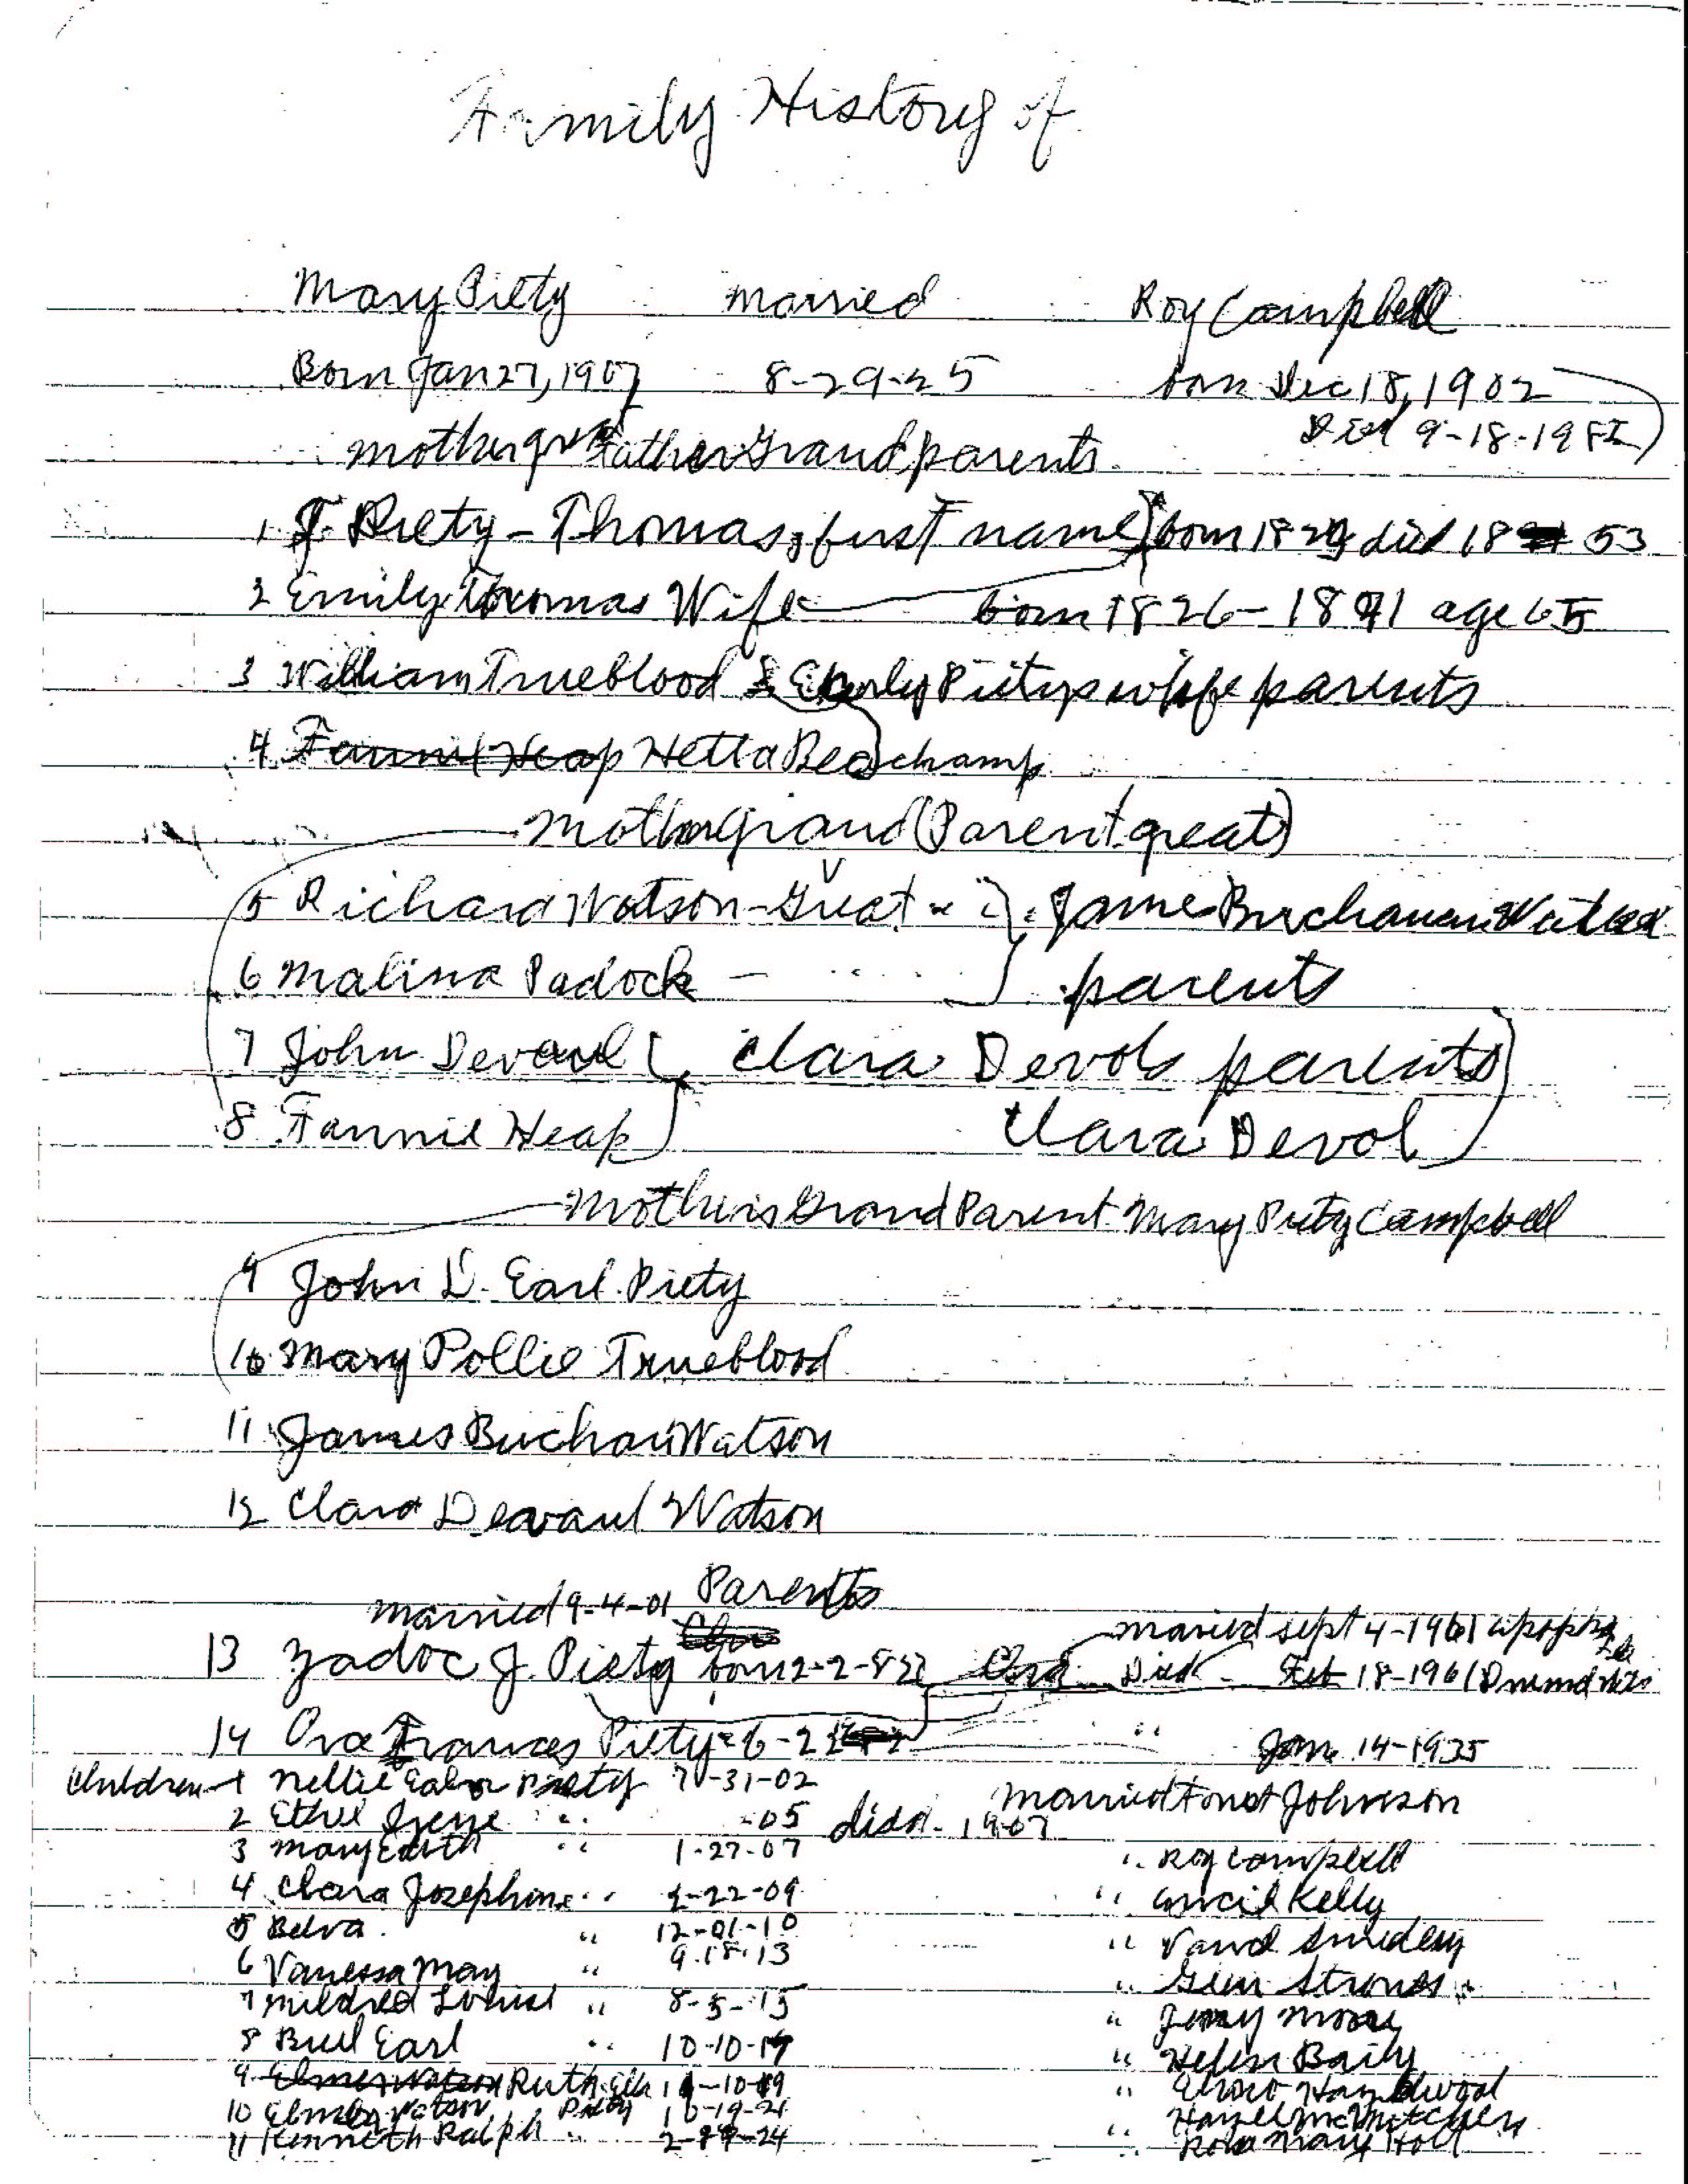 Family History of
Mary Piety married Roy Campbell
Born Jan 27, 1907 8-29-25 born Dec 18, 1902
Died 9-18-1982
mother great Father Grandparents
1 T. Piety - Thomas, first name born 1829 died 18 53
2 Emily Thomas Wife born 1826 - 1891 age 65
3 William Trueblood & Emily Pietys wife parents
4 Fannie Heap Hetta Beachamp
Mother Grand (Parent great)
5 Richard Watson - Great James Buchanan Watson
6 Malina Padock - parents
7 John Devaul Clara Devols parents
8 Fannie Heap Clara Devol
Mothers Grand Parent Mary Piety Campbell
9 John D. Earl Piety
10 Mary Pollie Trueblood
11 James Buchan Watson
12 Clara Deavaul Watson
Parents
married 9-4-01
married Sept 4-1901
13 Zadoc J. Piety born 2-2-82 Died Feb 18-1961
14 Ora Frances Piety 6-2 " Jan 14-1935
Children 1 Nellie Piety 7-31-02 married Johnson
2 Ethel Irene " -05 died - 1907
3 Mary Edith " 1-27-07 " Roy Campbell
4 Clara Josephine " 2-22-09 " Kelly
5 Belva " 12-01-10 " Smedley
6 Vanessa May " 9-18-13 " Glen
7 Mildred Louise " 8-5-15 " Moore
8 Earl " 10-10-17 " Helen Baily
9 Elmer Watson Ruth -10-19 " Haywood
10 Elmer Watson Piety 10-19-21 " Hazel
11 Kenneth Ralph " -24 " Rose Mary Holt